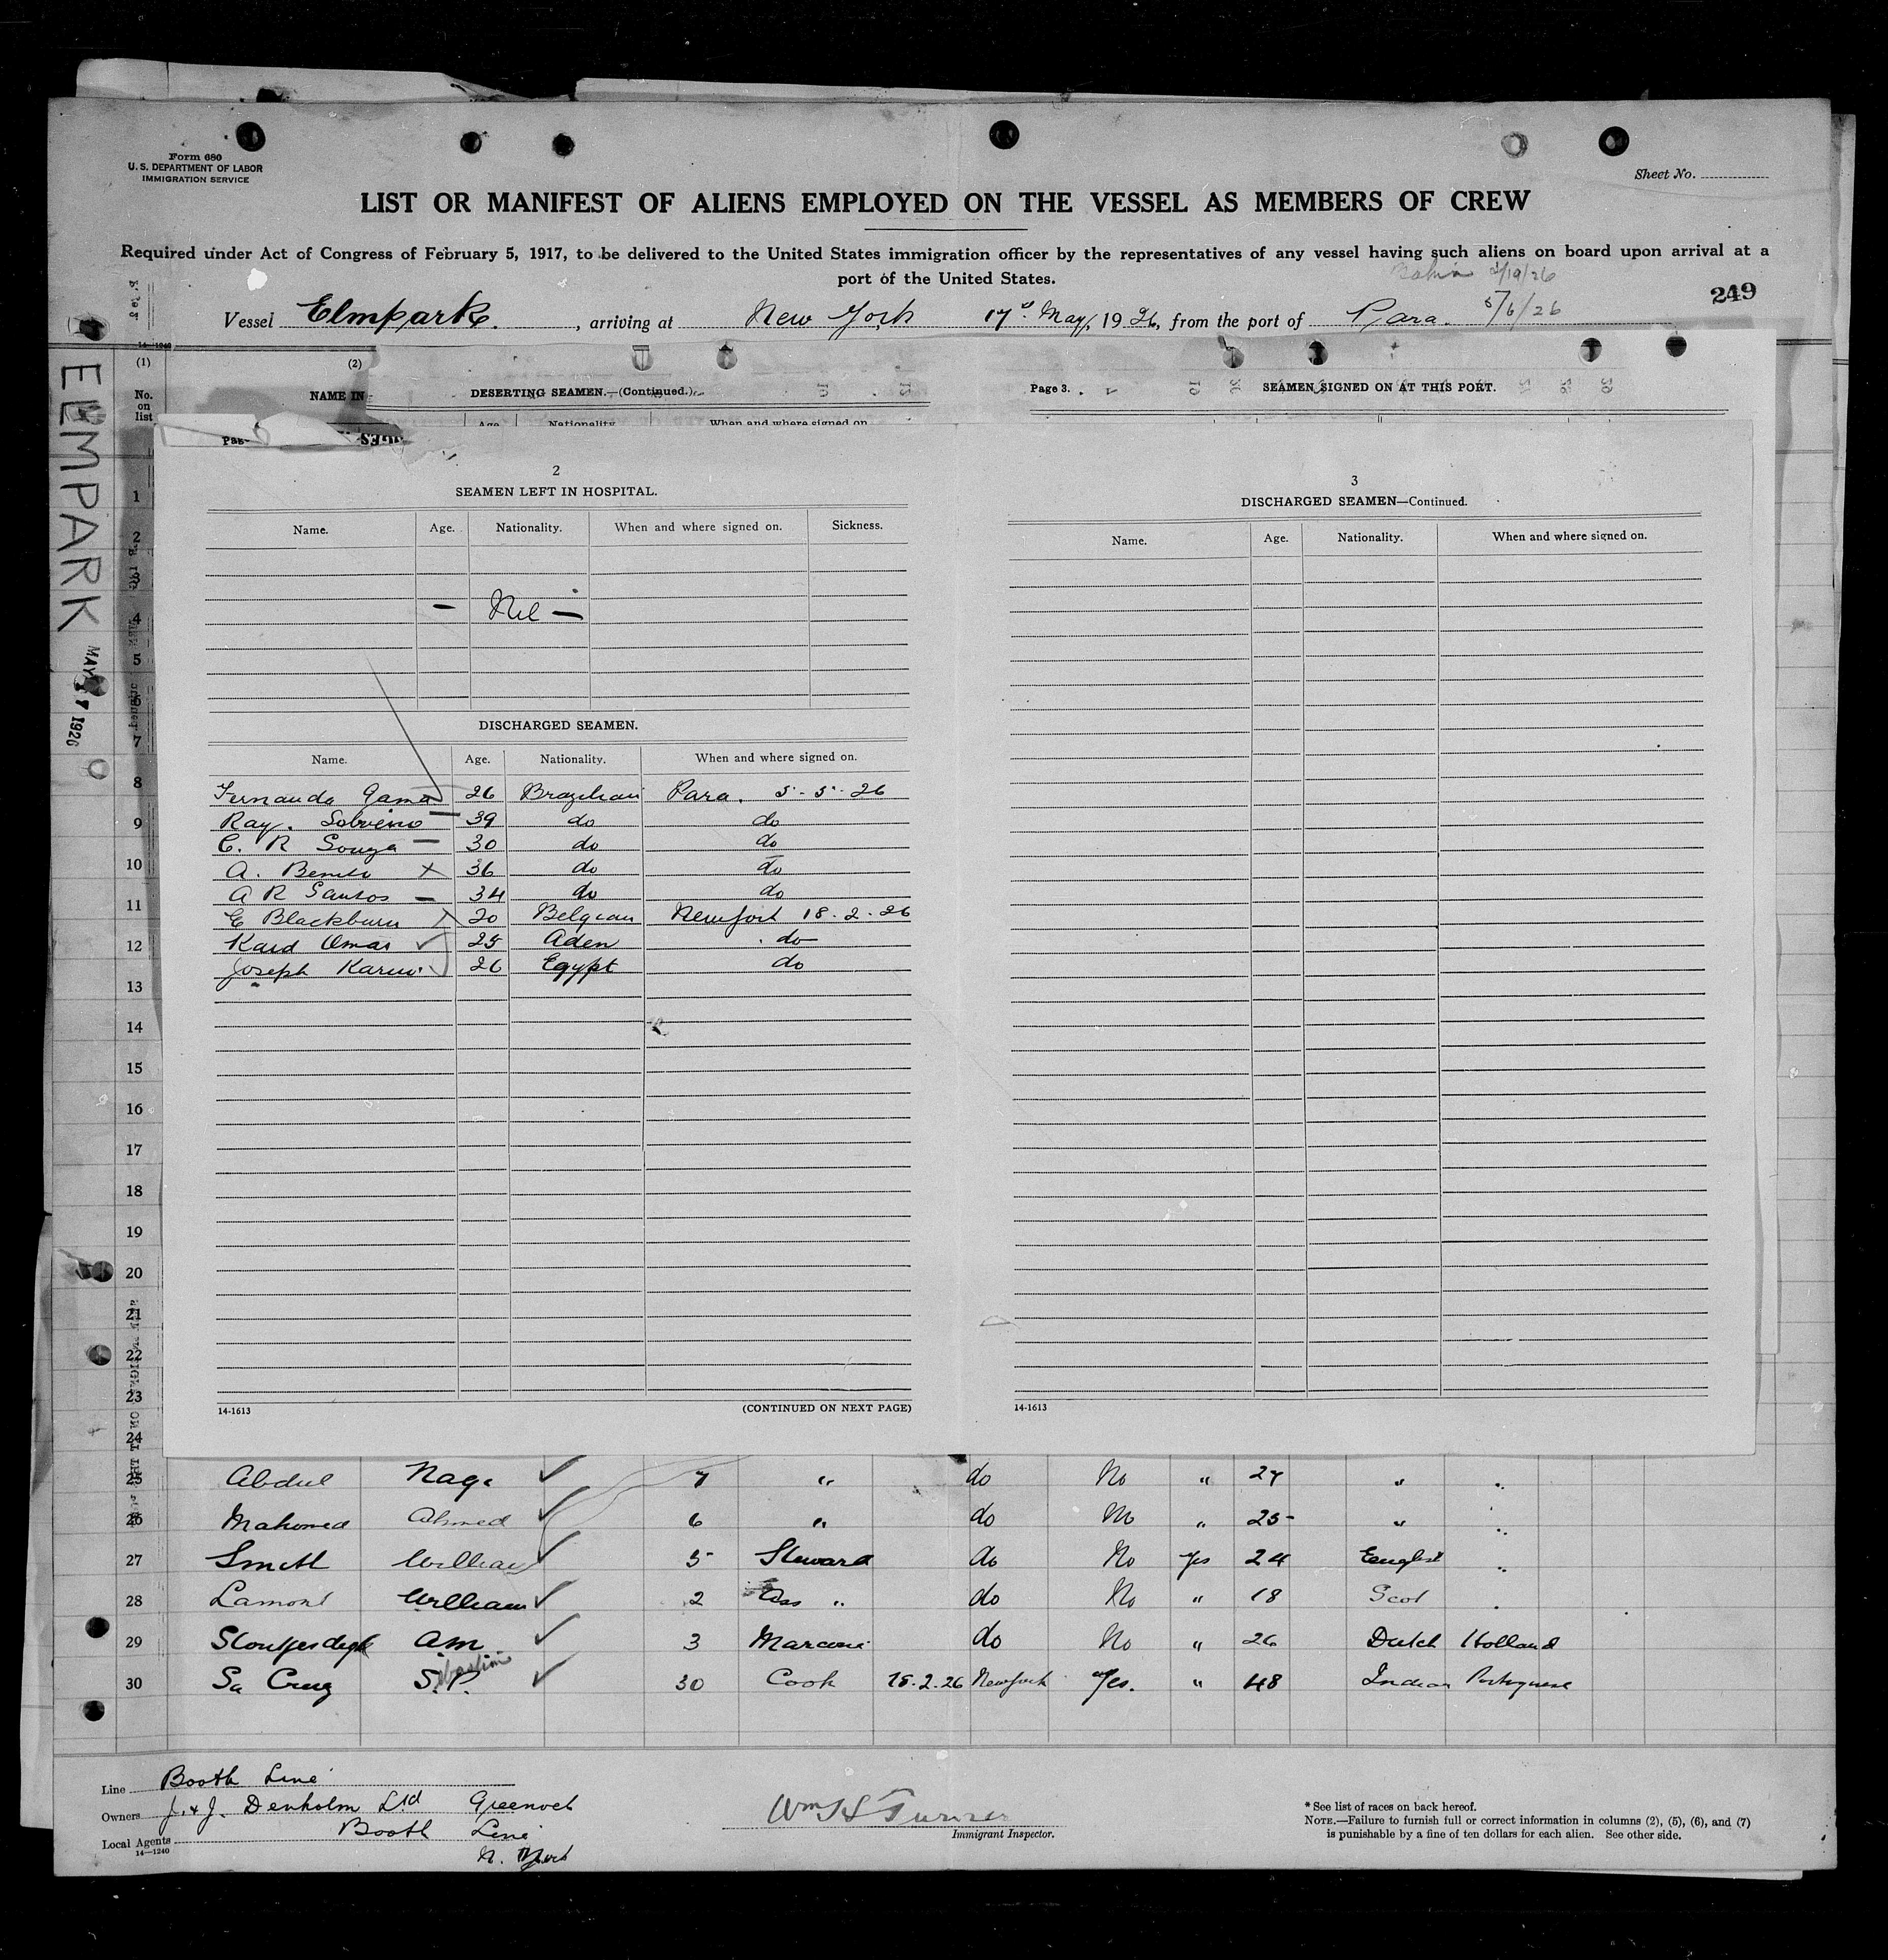 Form 680
U. S. DEPARTMENT OF LABOR
IMMIGRATION SERVICE
Sheet No.
LIST OR MANIFEST OF ALIENS EMPLOYED ON THE VESSEL AS MEMBERS OF CREW
Required under Act of Congress of February 5, 1917, to be delivered to the United States immigration officer by the representatives of any vessel having such aliens on board upon arrival at a
port of the United States.
Bahia 4/19/26
249
Vessel Elmpark. , arriving at New York 17th May, 1926, from the port of Para. 5/6/26
ELMPARK
MAY 17 1926
(1) (2)
No. on list
NAME IN
DESERTING SEAMEN.—(Continued.)
Page 3. SEAMEN SIGNED ON AT THIS PORT.
Age Nationality When and where signed on
2
SEAMEN LEFT IN HOSPITAL.
Name. Age. Nationality. When and where signed on. Sickness.
— Nil —
DISCHARGED SEAMEN.
Name. Age. Nationality. When and where signed on.
Fernando Gama 26 Brazilian Para. 5-5-26
Ray. Sobrino — 39 do do
C. R Souza — 30 do do
A. Bento x 36 do do
A R Santos — 34 do do
E Blackburn 20 Belgian Newport 18.2.26
Kaid Omar ✓ 25 Aden do
Joseph Karim 26 Egypt do
14-1613 (CONTINUED ON NEXT PAGE)
3
DISCHARGED SEAMEN—Continued.
Name. Age. Nationality. When and where signed on.
14-1613
1
2
3
4
5
6
7
8
9
10
11
12
13
14
15
16
17
18
19
20
21
22
23
24
25 Abdul Nagi ✓ 7 " do No " 27 " "
26 Mahomed Ahmed ✓ 6 " do No " 25 " "
27 Smith William ✓ 5 Steward do No Yes 24 English "
28 Lamont William ✓ 2 Ass " do No " 18 Scot "
29 AM ✓ 3 Marconi do No " 26 Dutch Holland
30 Sa Cruz S.P. ✓ 30 Cook 18.2.26 Newport Yes. " 48 Indian Portuguese
Line Booth Line
Owners J. & J. Denholm Ltd Greenock
Local Agents Booth Line
N. York
14—1240
Wm S Turner
Immigrant Inspector.
* See list of races on back hereof.
NOTE.—Failure to furnish full or correct information in columns (2), (5), (6), and (7)
is punishable by a fine of ten dollars for each alien. See other side.